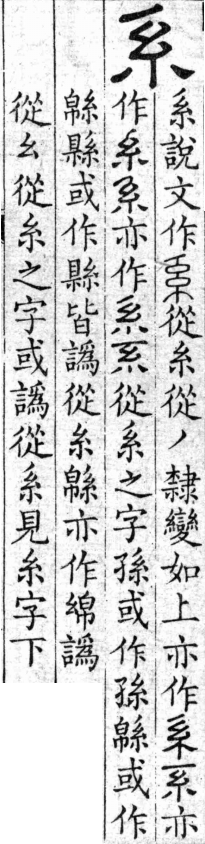 系
系說文作從糸從丿隸變如上亦作亦
作亦作從系之字孫或作孫緜或作
緜縣或作縣皆譌從糸緜亦作綿譌
從幺從糸之字或譌從系見糸字下